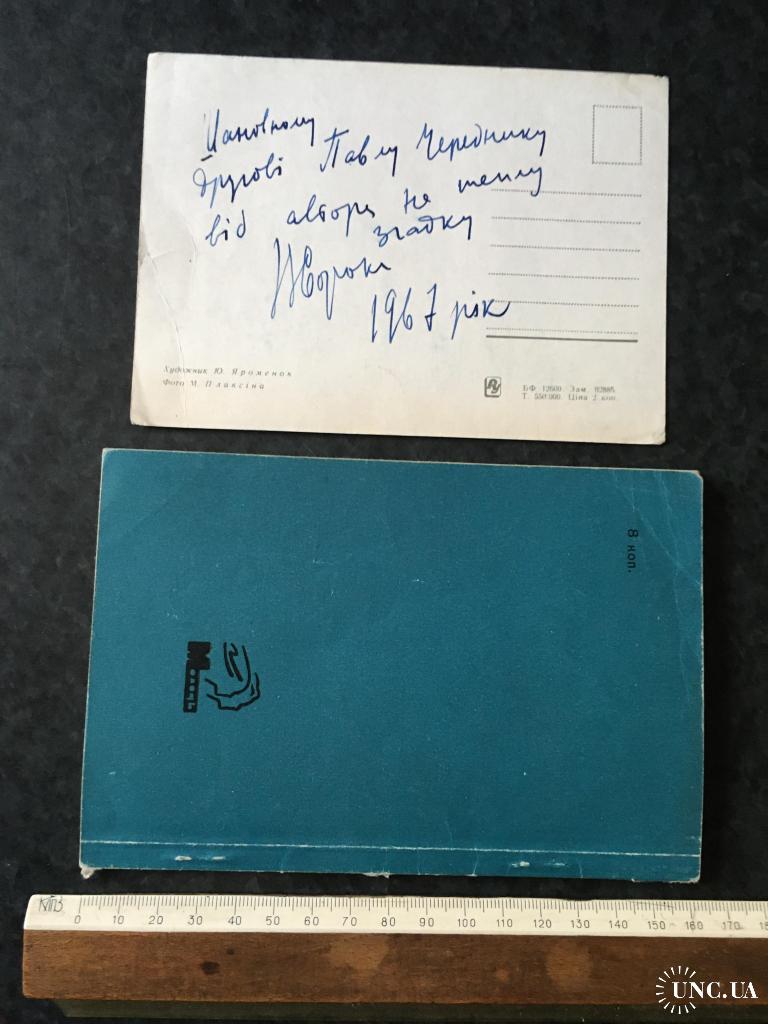 Шановному
другові Павлу Череднику
від автора на теплу
згадку
1967 рік
Художник Ю. Яроменок
Фото М. Плаксіна
БФ 12600. Зам. 02885.
Т. 550 000. Ціна 2 коп.
8 коп.
Молодь
КПЗ
0 10 20 30 40 50 60 70 80 90 100 110 120 130 140 150 160 170 18
UNC.UA